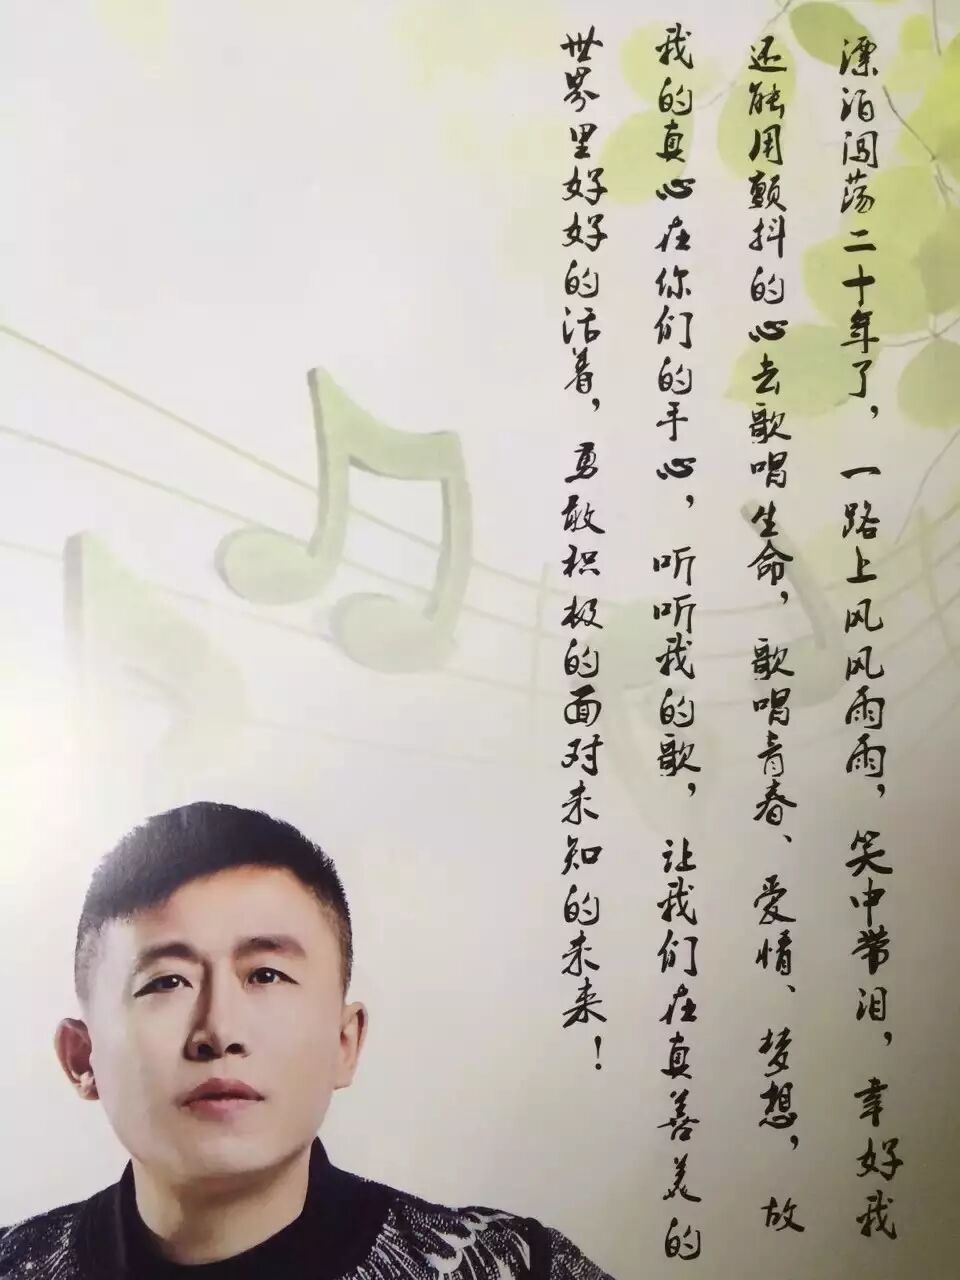 漂泊闯荡二十年了，一路上风风雨雨，笑中带泪，幸好我
还能用颤抖的心去歌唱生命，歌唱青春、爱情、梦想，放
我的真心在你们的手心，听听我的歌，让我们在真善美的
世界里好好的活着，勇敢积极的面对未知的未来！